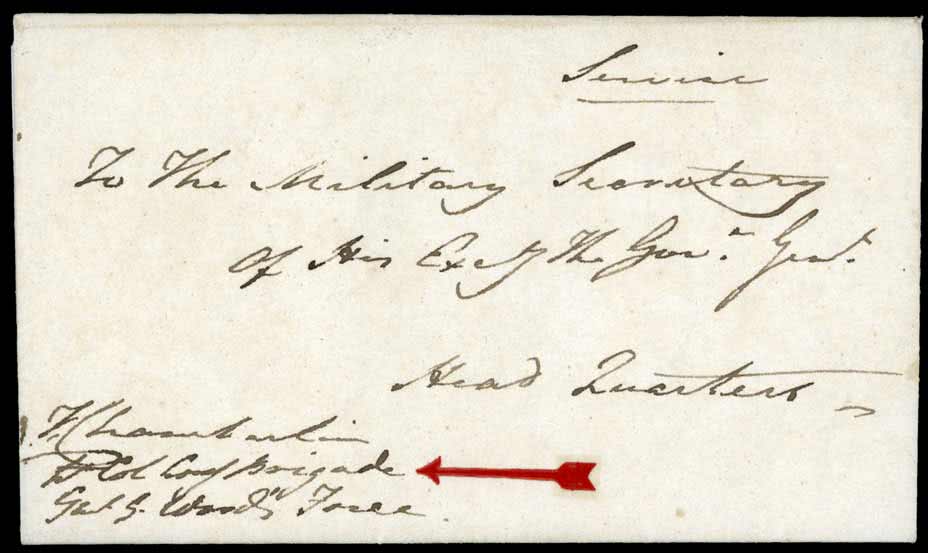 Service
To The Military Secretary
Of His Excly The Govr. Genl.
Head Quarters
Chamberlain
Lt Col Comg Brigade
Genl G. Wood's Force